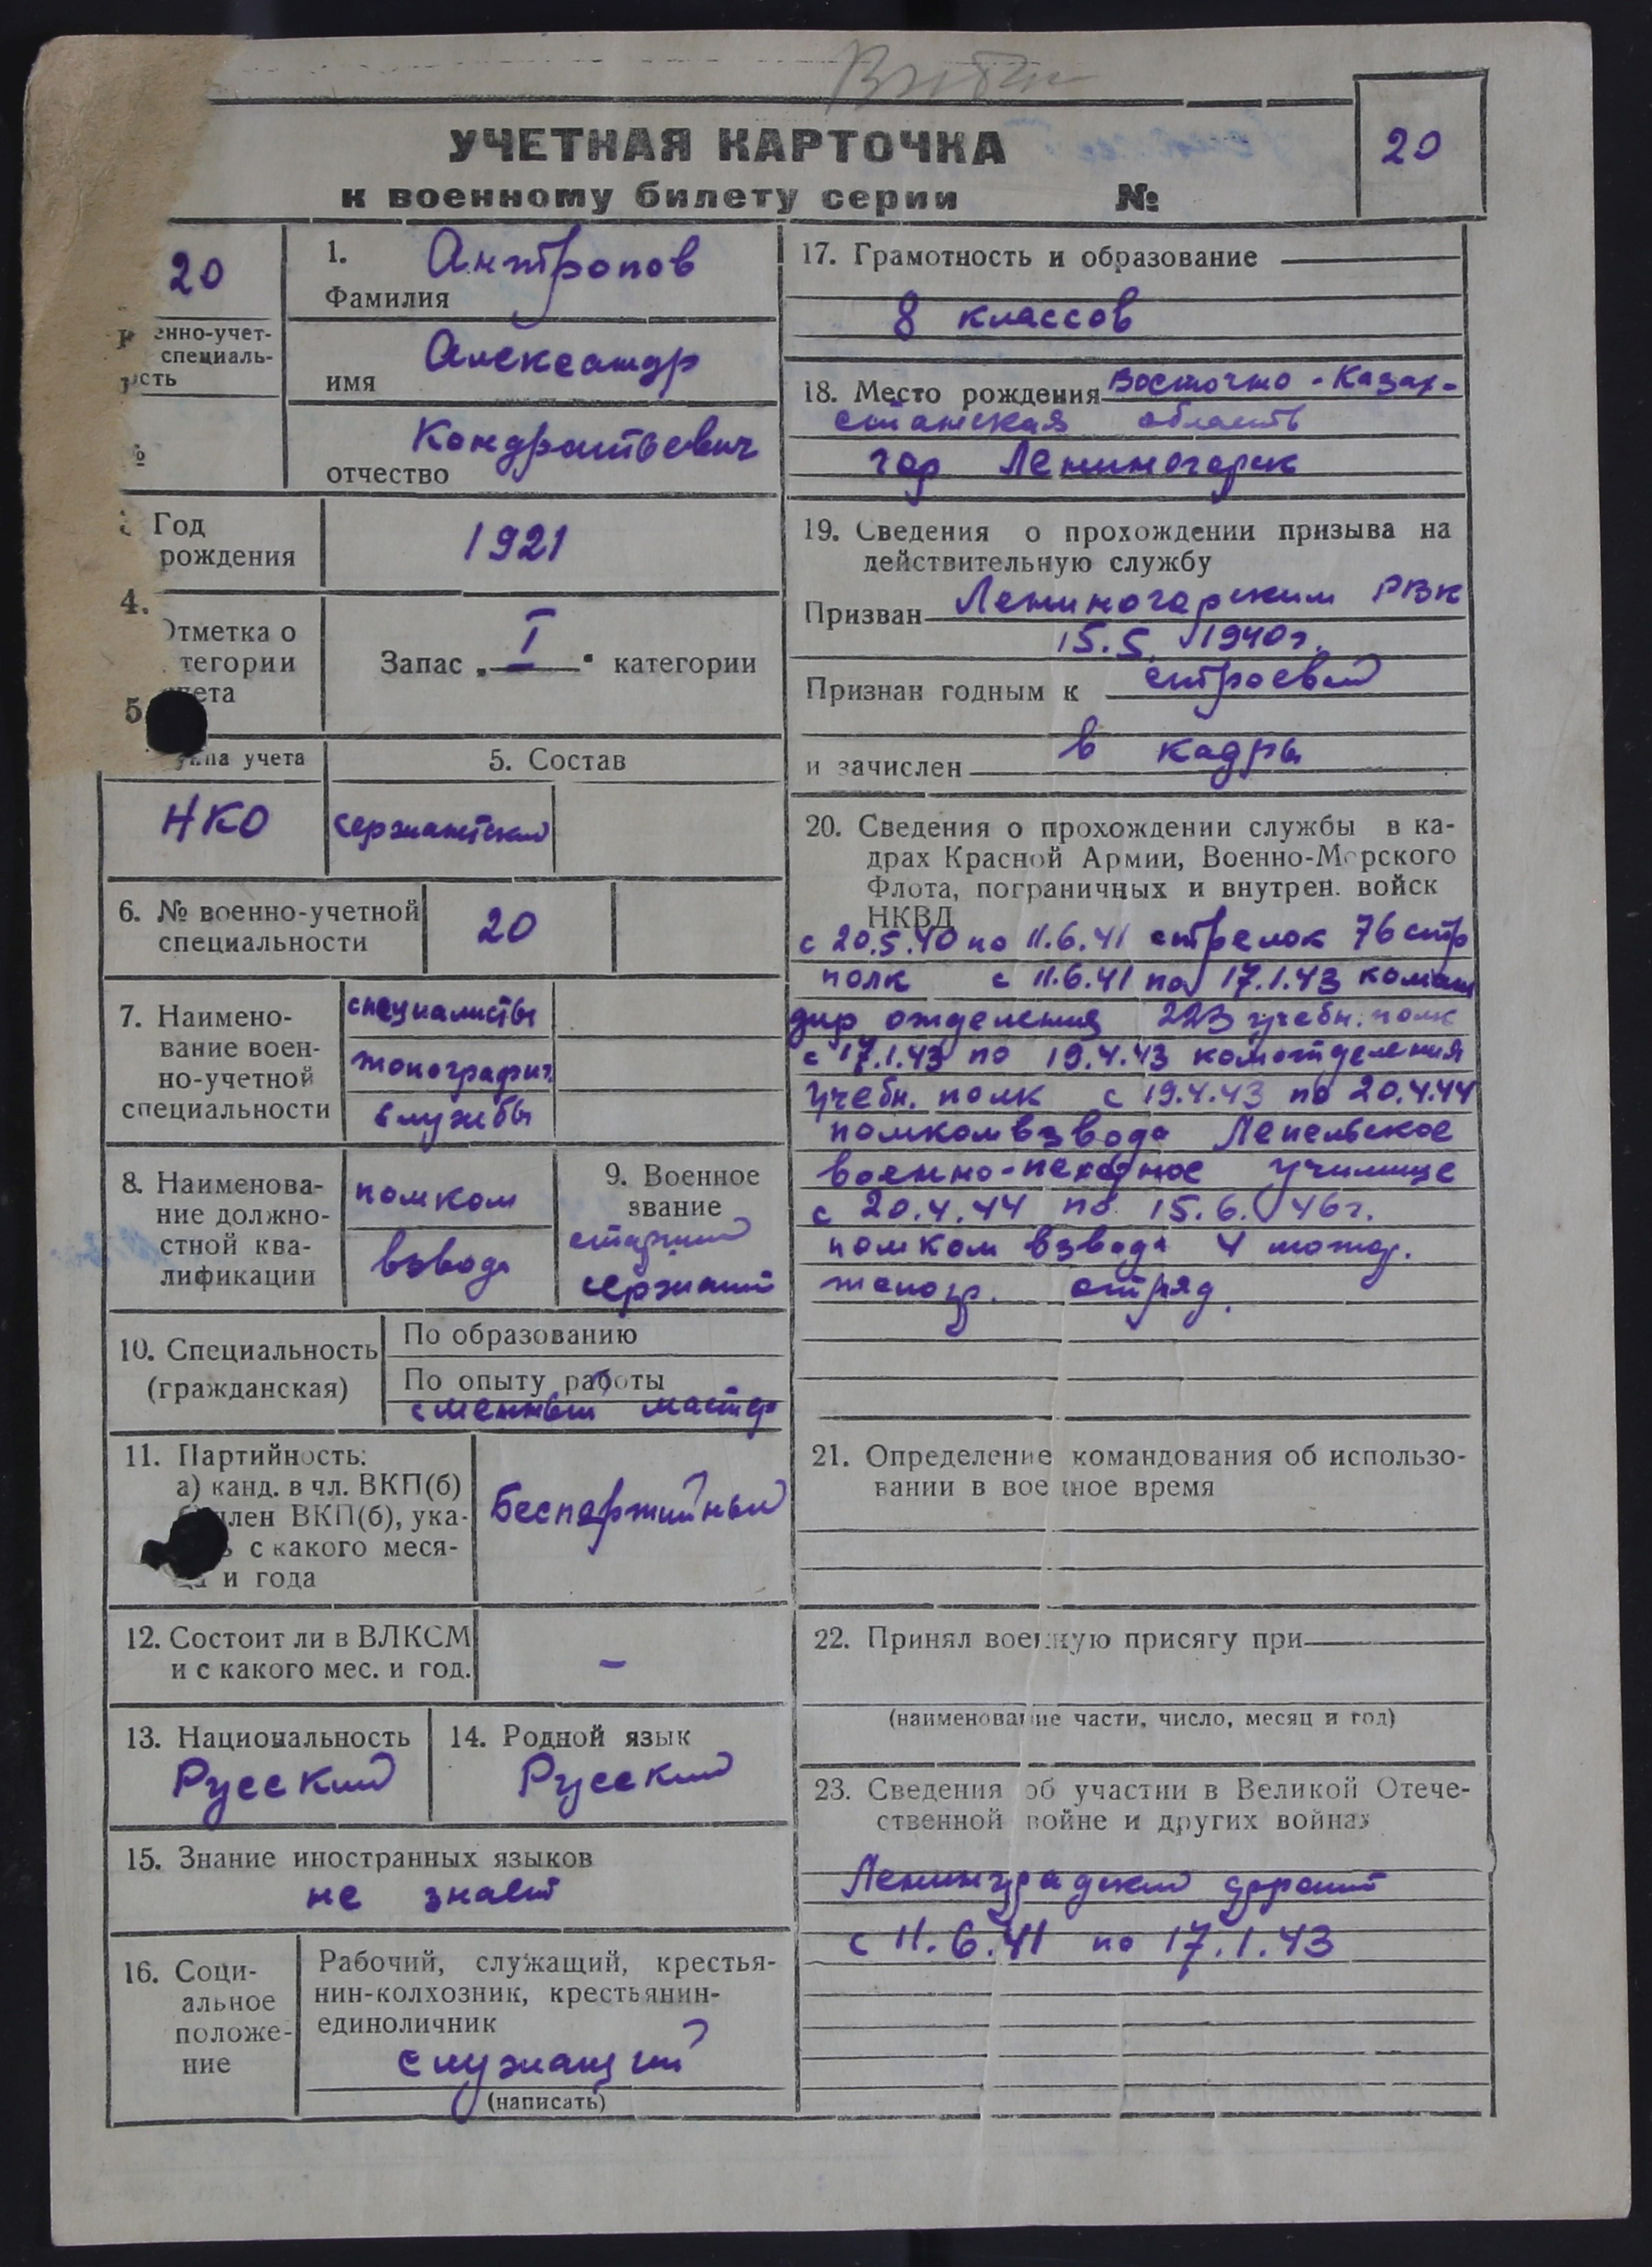 УЧЕТНАЯ КАРТОЧКА
к военному билету серии №
20
20
енно-учет-
специаль-
ость
1.
Антропов
Фамилия
Александр
имя
Кондратьевич
отчество
Год
рождения
1921
4.
Отметка о
тегории
ета
Запас „ I " категории
5
па учета
НКО
5. Состав
сержантский
6. № военно-учетной
специальности
20
7. Наимено-
вание воен-
но-учетной
специальности
специалисты
топографич.
службы
8. Наименова-
ние должно-
стной ква-
лификации
помком
взвода
9. Военное
звание
старший
сержант
10. Специальность
(гражданская)
По образованию
По опыту работы
сменный мастер
11. Партийность:
а) канд. в чл. ВКП(б)
член ВКП(б), ука-
ь с какого меся-
ца и года
Беспартийный
12. Состоит ли в ВЛКСМ
и с какого мес. и год.
–
13. Национальность
Русский
14. Родной язык
Русский
15. Знание иностранных языков
не знает
16. Соци-
альное
положе-
ние
Рабочий, служащий, крестья-
нин-колхозник, крестьянин-
единоличник
служащий
(написать)
17. Грамотность и образование
8 классов
18. Место рождения Восточно-Казах-
станская область
гор Лениногорск
19. Сведения о прохождении призыва на
действительную службу
Призван Лениногорским РВК
15.5. 1940г.
Признан годным к строевой
в кадры
и зачислен
20. Сведения о прохождении службы в ка-
драх Красной Армии, Военно-Морского
Флота, пограничных и внутрен. войск
НКВД
с 20.5.40 по 11.6.41 стрелок 76 стр
полк с 11.6.41 по 17.1.43 коман
дир отделения 223 учебн. полк
с 17.1.43 по 19.4.43 комотделения
учебн. полк с 19.4.43 по 20.4.44
помкомвзвода Лепельское
военно-пехотное училище
с 20.4.44 по 15.6.46г.
помком взвода 4 мотор.
топогр. отряд.
21. Определение командования об использо-
вании в военное время
22. Принял военную присягу при
(наименование части, число, месяц и год)
23. Сведения об участии в Великой Отече-
ственной войне и других войнах
Ленинградский фронт
с 11.6.41 по 17.1.43